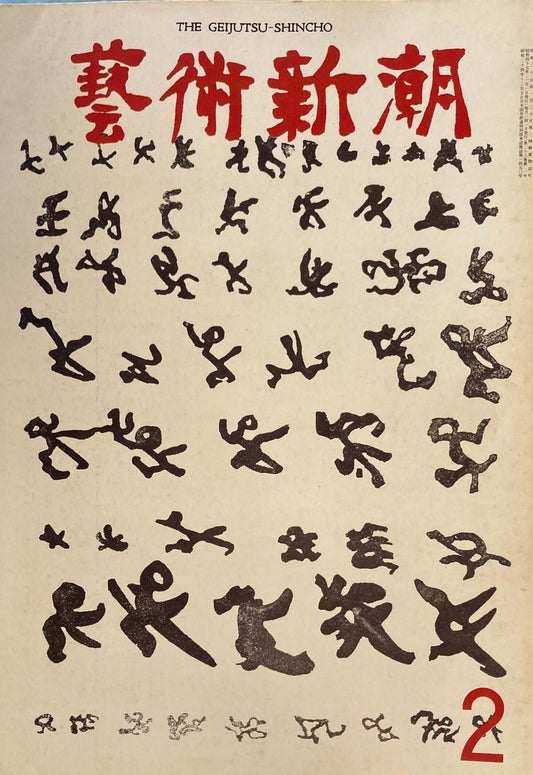 THE GEIJUTSU-SHINCHO
藝術新潮
2